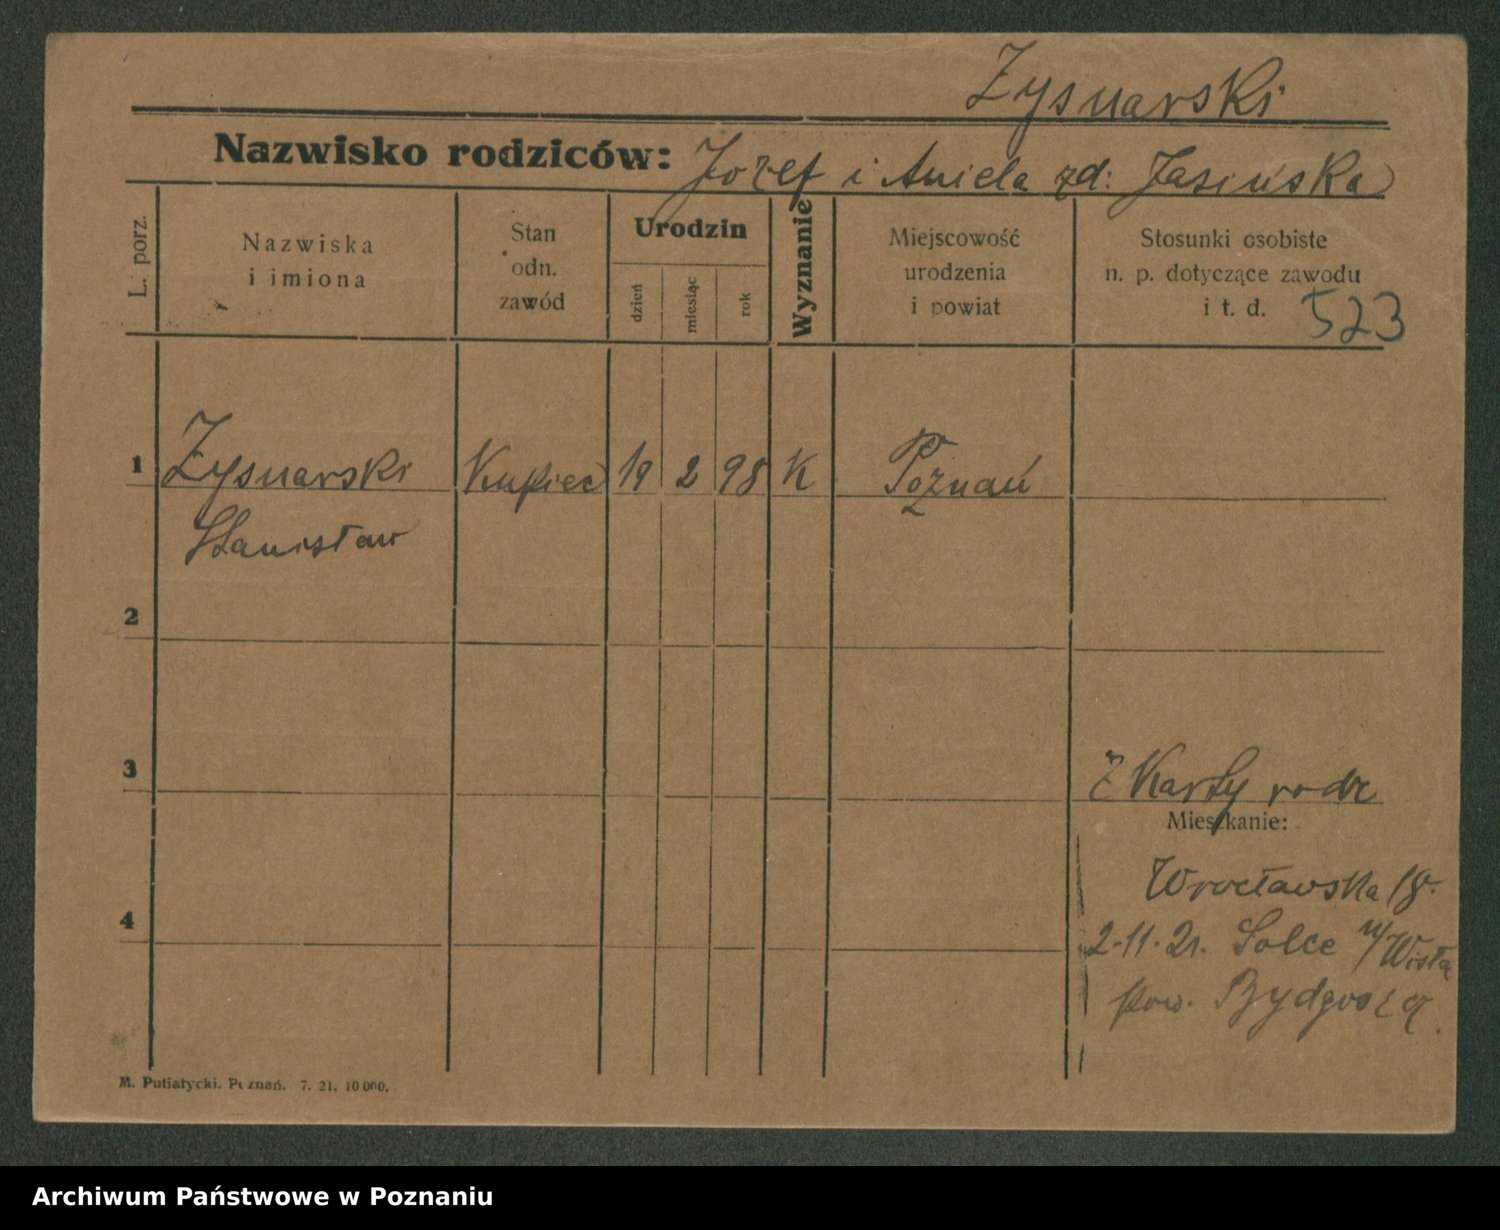 Zysnarski
Nazwisko rodziców: Jozef i Aniela zd: Jasińska
L. porz.
Nazwiska
i imiona
Stan
odn.
zawód
Urodzin
dzień
miesiąc
rok
Wyznanie
Miejscowość
urodzenia
i powiat
Stosunki osobiste
n. p. dotyczące zawodu
i t. d. 523
1 Zysnarski Kupiec 19 2 98 K Poznań
Stanisław
2
3
Z Karty rodz
Mieszkanie:
Wrocławska 18.
4
2-11-21. Solec n/Wisłą
pow. Bydgoszcz.
M. Putiatycki. Poznań. 7. 21. 10 000.
Archiwum Państwowe w Poznaniu